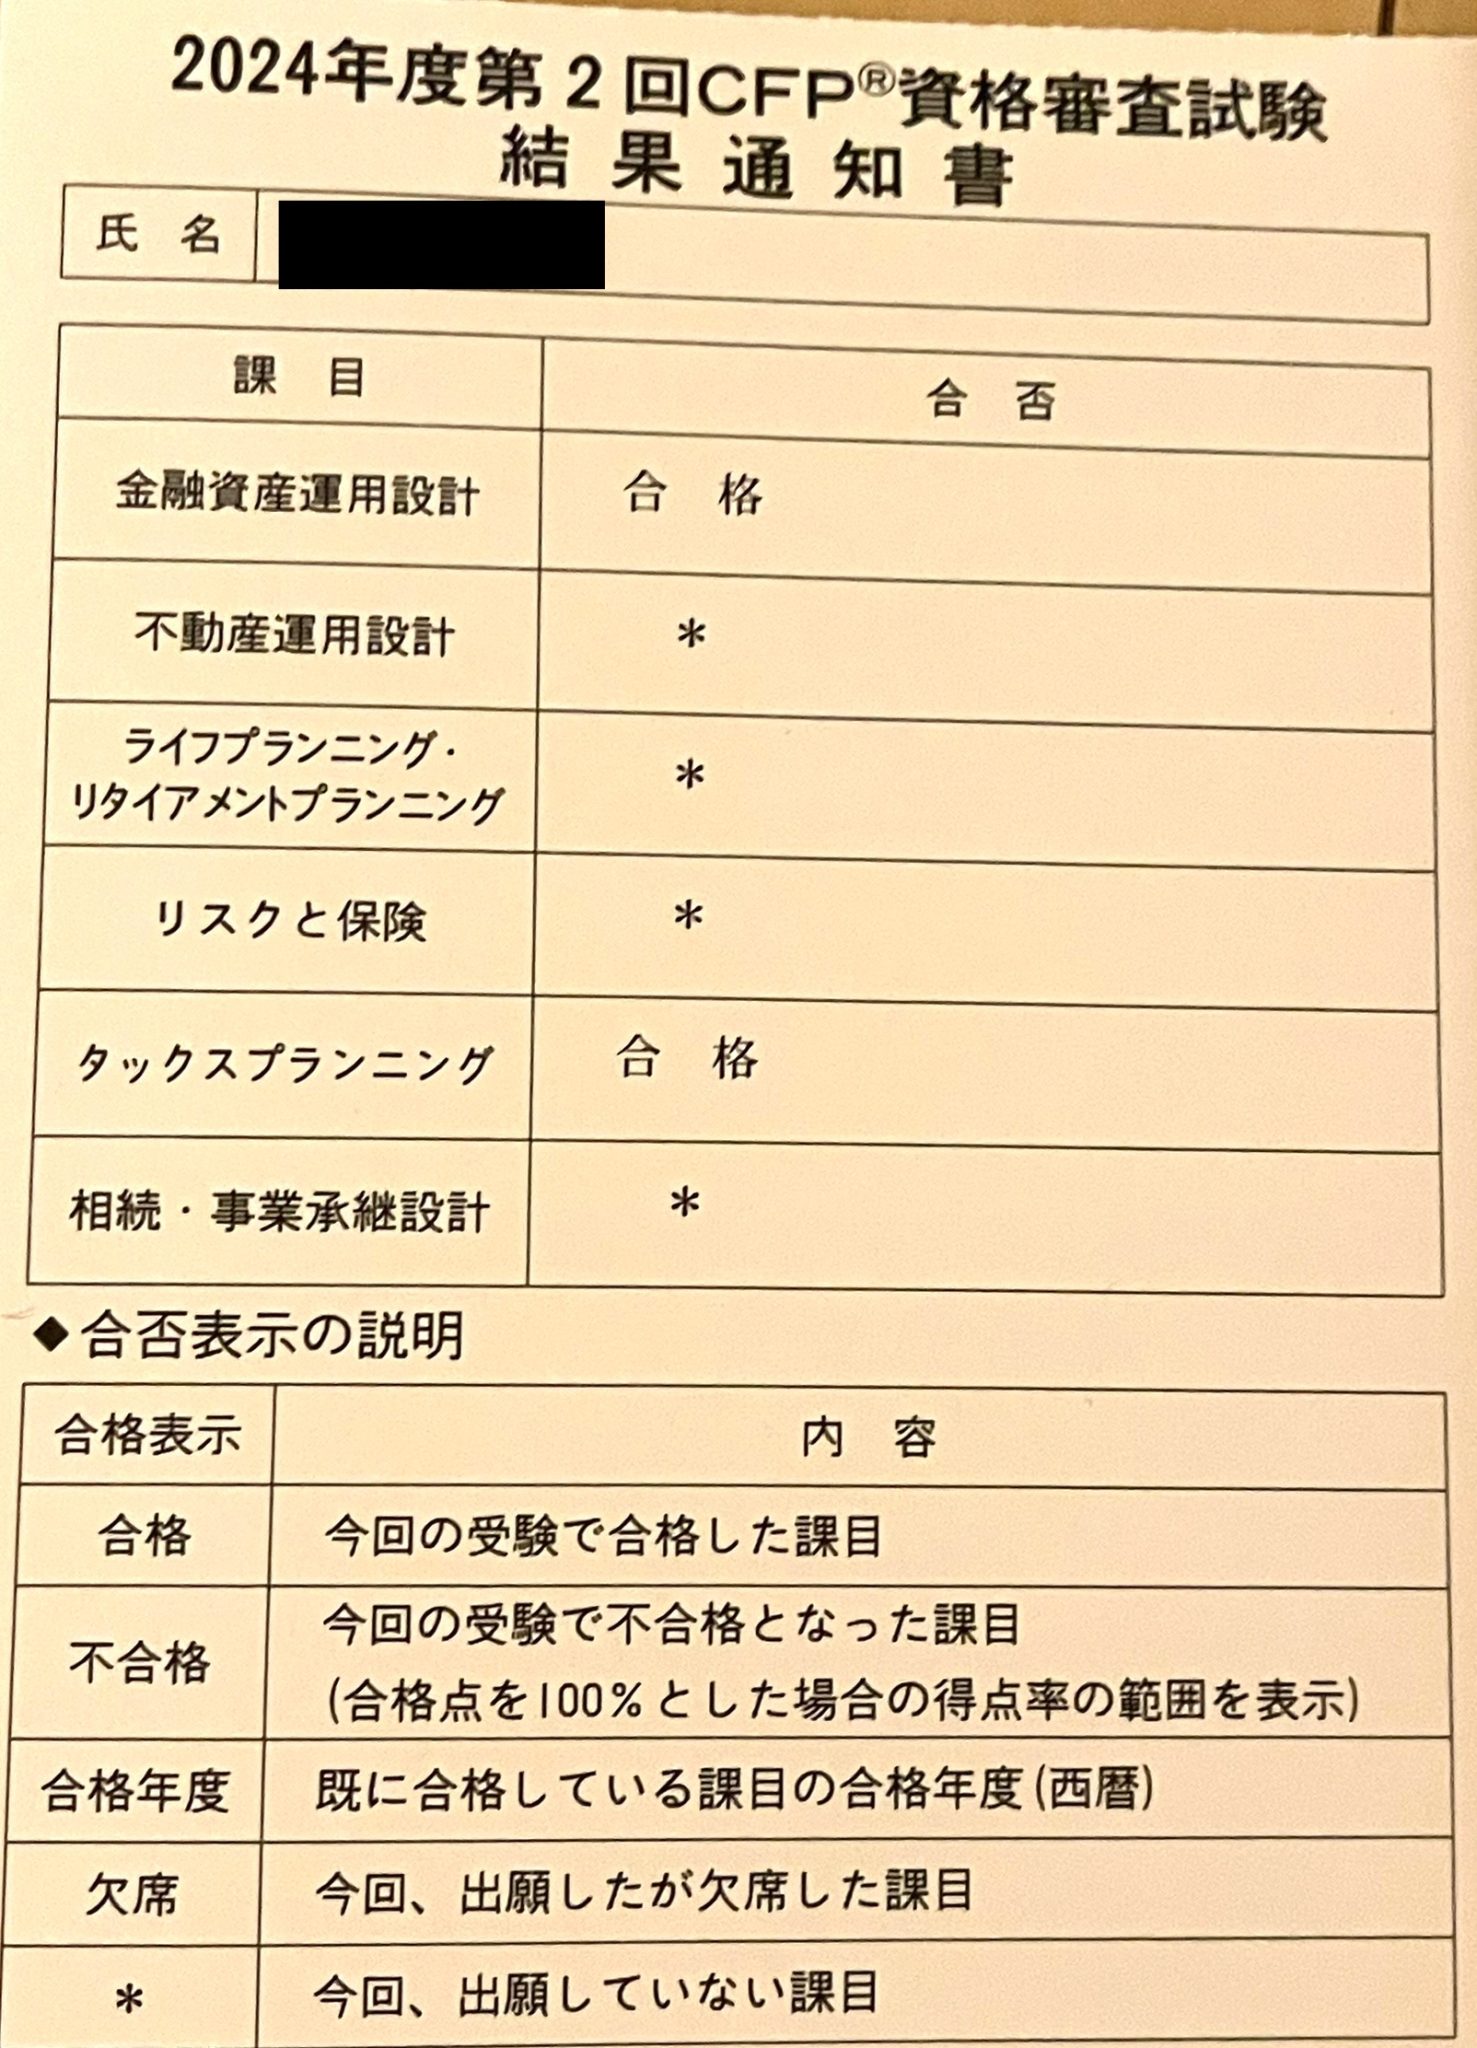 2024年度第2回CFP®資格審査試験
結果通知書
氏名
課目 合否
金融資産運用設計 合格
不動産運用設計 *
ライフプランニング・
リタイアメントプランニング *
リスクと保険 *
タックスプランニング 合格
相続・事業承継設計 *
◆合否表示の説明
合格表示 内容
合格 今回の受験で合格した課目
不合格 今回の受験で不合格となった課目
(合格点を100%とした場合の得点率の範囲を表示)
合格年度 既に合格している課目の合格年度(西暦)
欠席 今回、出願したが欠席した課目
* 今回、出願していない課目